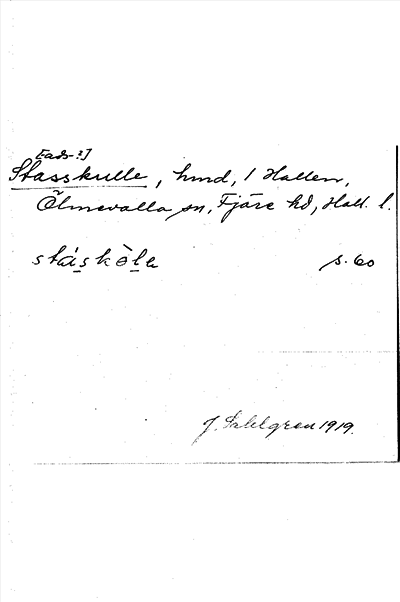 [ads-?]
Stasskulle, hmd, 1 Hallen,
Ölmevalla sn, Fjäre hd, Hall. l.
stáskòle s. 60
J. Sahlgren 1919.